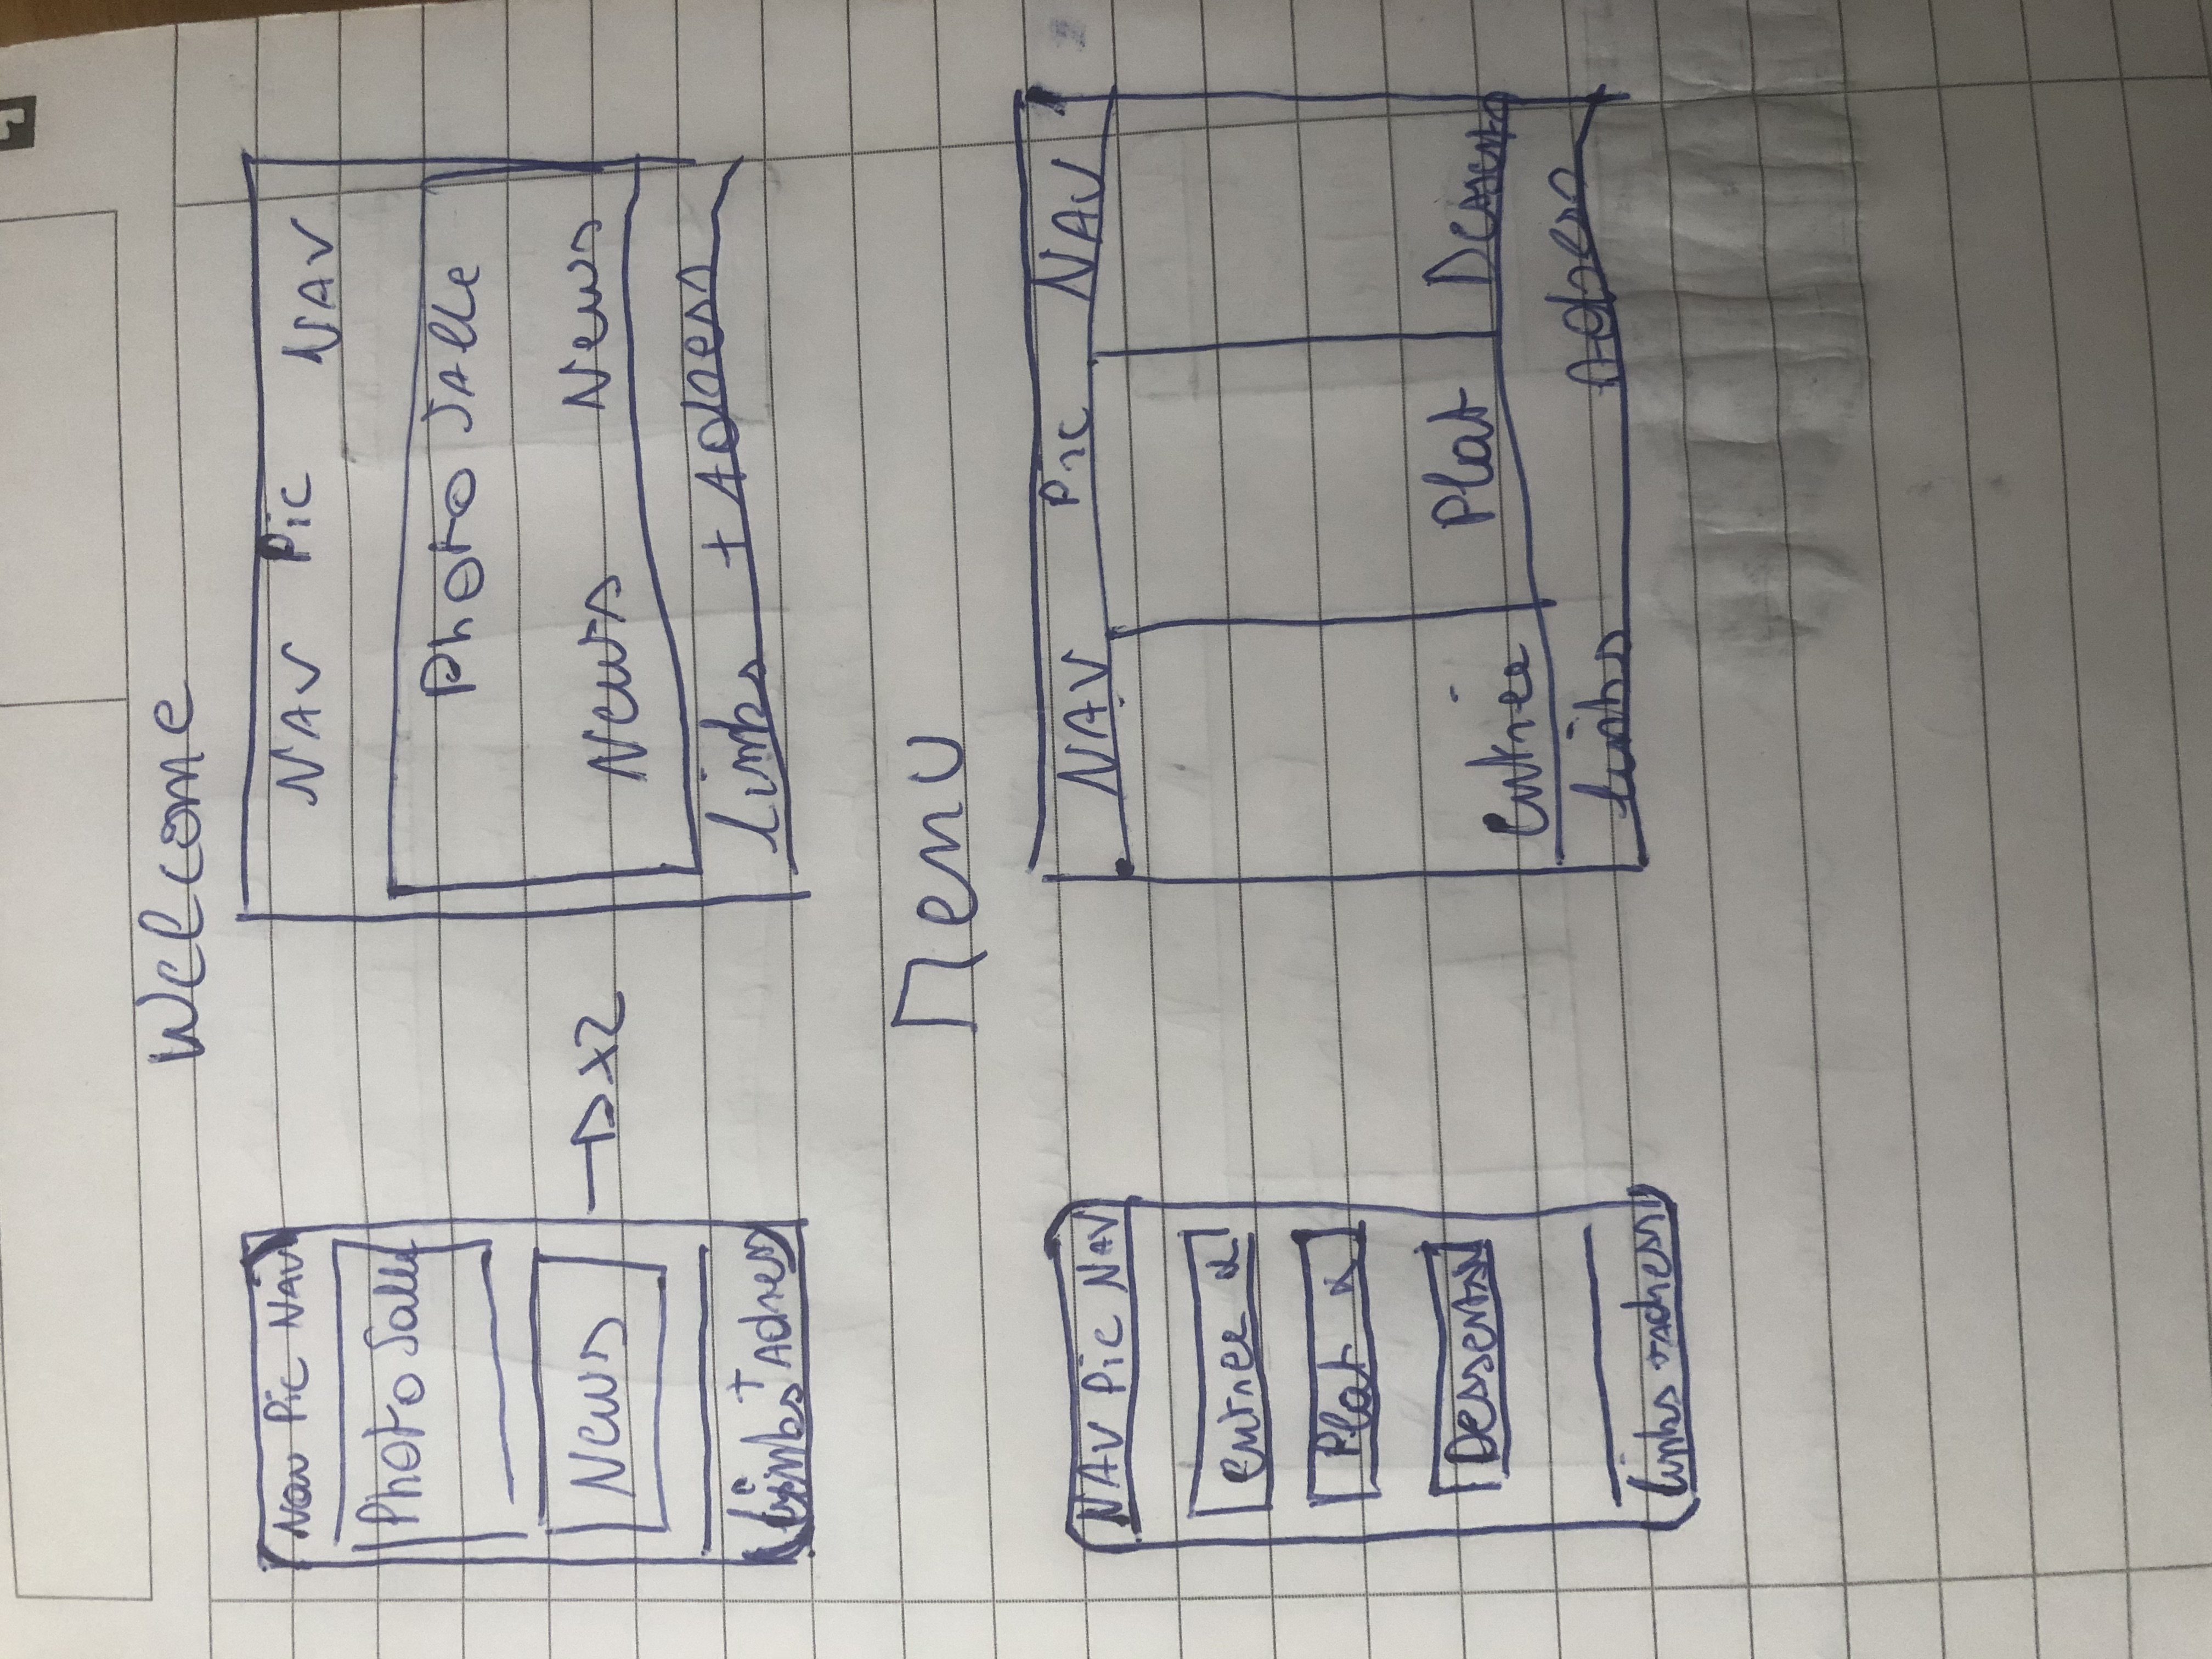 Welcome
Nav Pic NAV
Photo Salle
News
→ x2
Links + Adress
NAV Pic NAV
Photo SAlle
News News
Links + Adress
Menu
NAV Pic NAV
entree
Plat
Desserts
Links + adress
NAV Pic NAV
entrée Plat Desserts
Links Adress